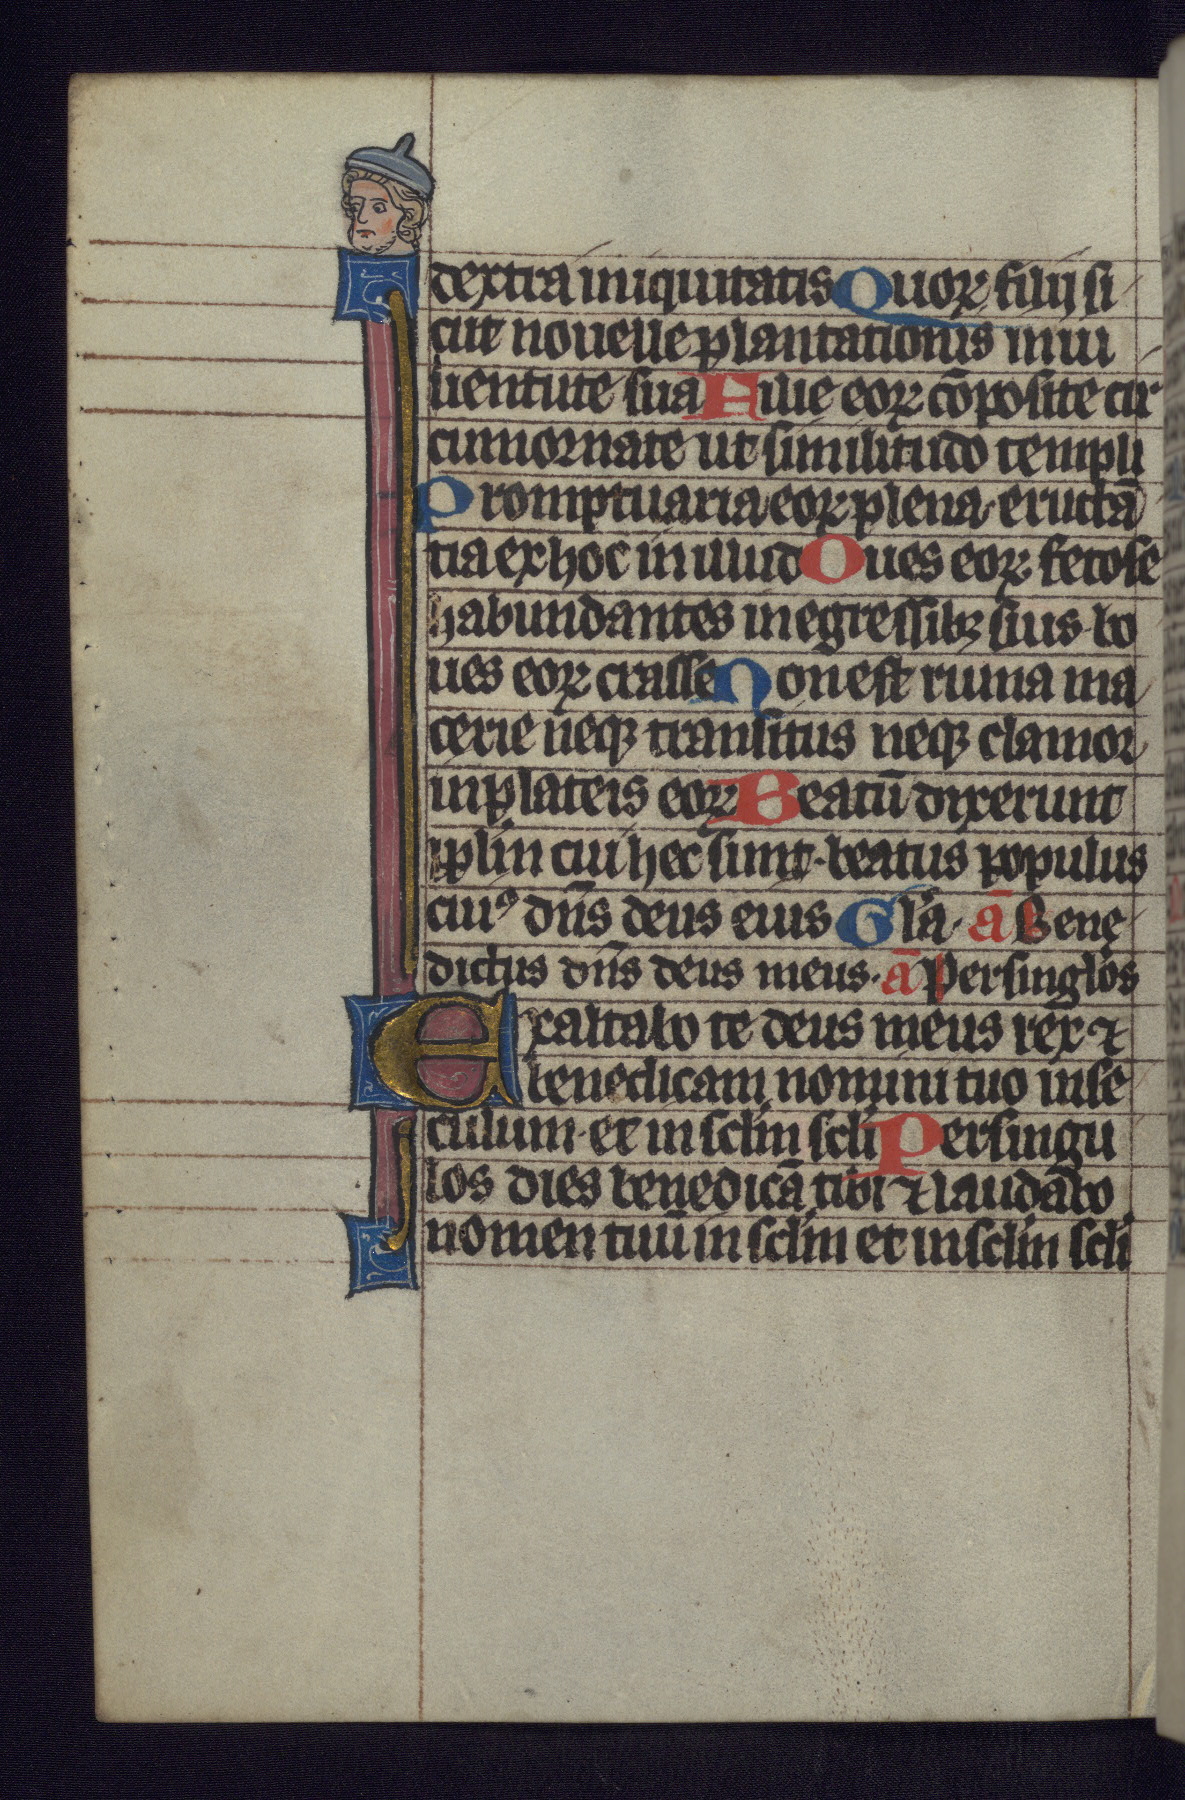 dextra iniquitatis Quoꝝ filij si
cut nouelle plantationis in iu
uentute sua Filie eoꝝ cōposite cir
cumornate ut similitudo templi
Promptuaria eoꝝ plena· eructā
tia ex hoc in illud Oues eoꝝ fetose
habundantes in egressibꝫ suis· bo
ues eoꝝ crasse Non est ruina ma
cerie neqꝫ transitus neqꝫ clamor
in plateis eoꝝ Beatū dixerunt
pplm cui hec sunt· beatus populus
cuiꝰ dn̄s deus eius Gl'a· ā Bene
dictus dn̄s deus meus· ā Per singlos
Exaltabo te deus meus rex ⁊
benedicam nomini tuo in se
culum· et in sclm scli Per singu
los dies benedicā tibi ⁊ laudabo
nomen tuū in sclm et in sclm scli